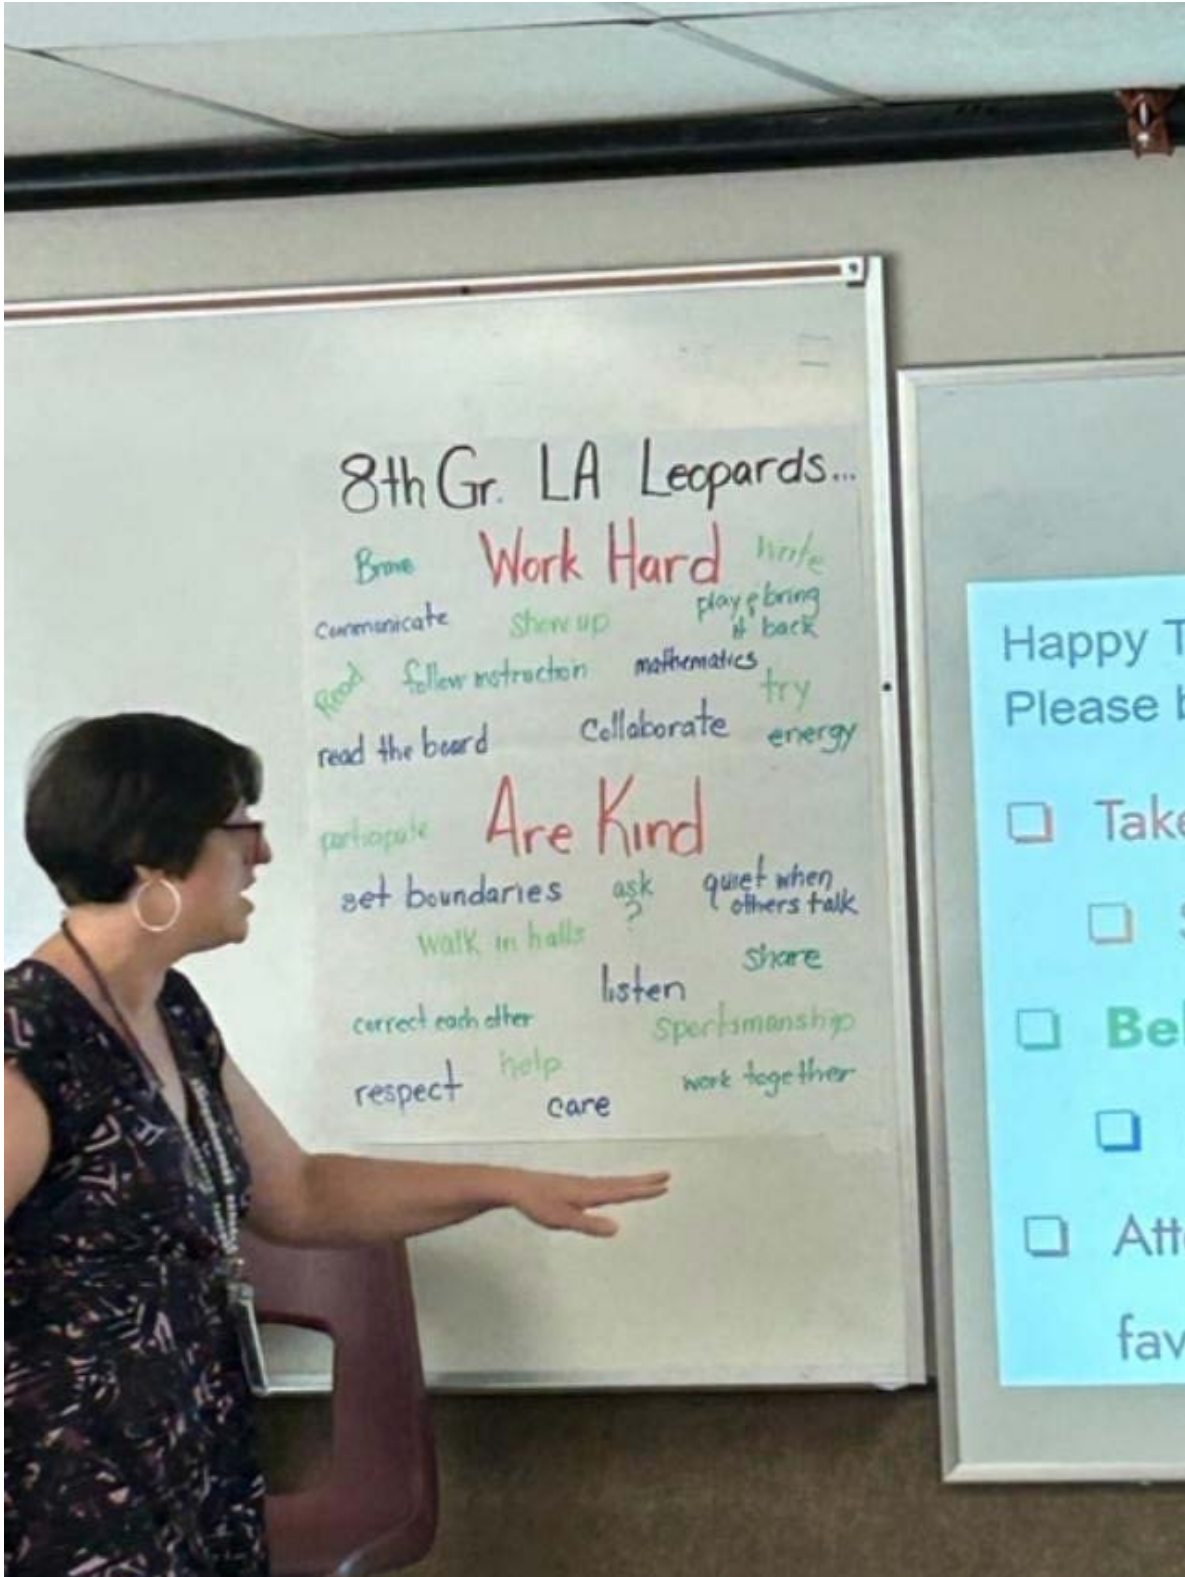 8th Gr. LA Leopards...
Brave Work Hard Write
communicate show up play & bring
it back
Read follow instruction mathematics try
read the board Collaborate energy
participate Are Kind
set boundaries ask
?
quiet when
others talk
walk in halls
listen share
correct each other sportsmanship
respect help work together
care
Happy T
Please b
Take
S
Bel
Att
fav